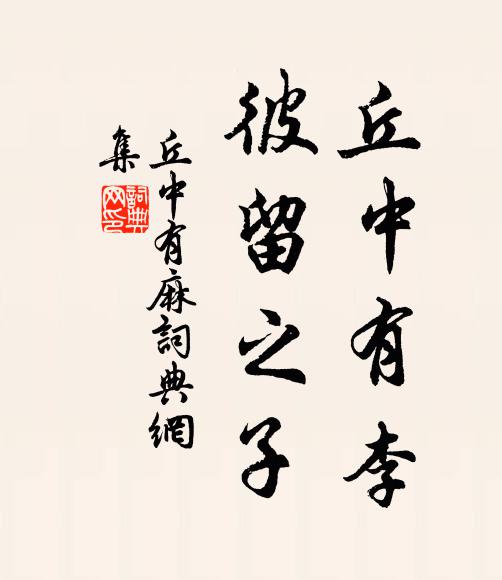 丘中有李
彼留之子
丘中有麻詞典網
集
詞典
网印